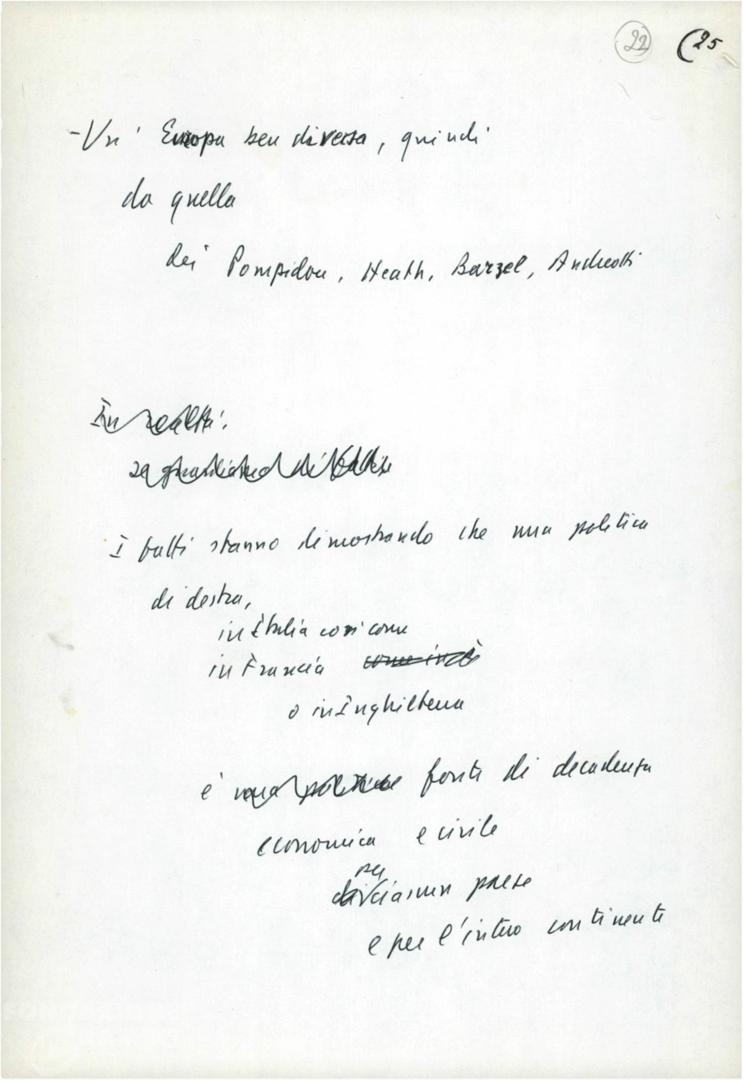 22 (25
- Un' Europa ben diversa, quindi
da quella
dei Pompidou, Heath, Barzel, Andreotti
In realtà,
I fatti stanno dimostrando che una politica
di destra,
in Italia così come
in Francia
o in Inghilterra
è una politica fonte di decadenza
economica e civile
per
ciascun paese
e per l'intero continente